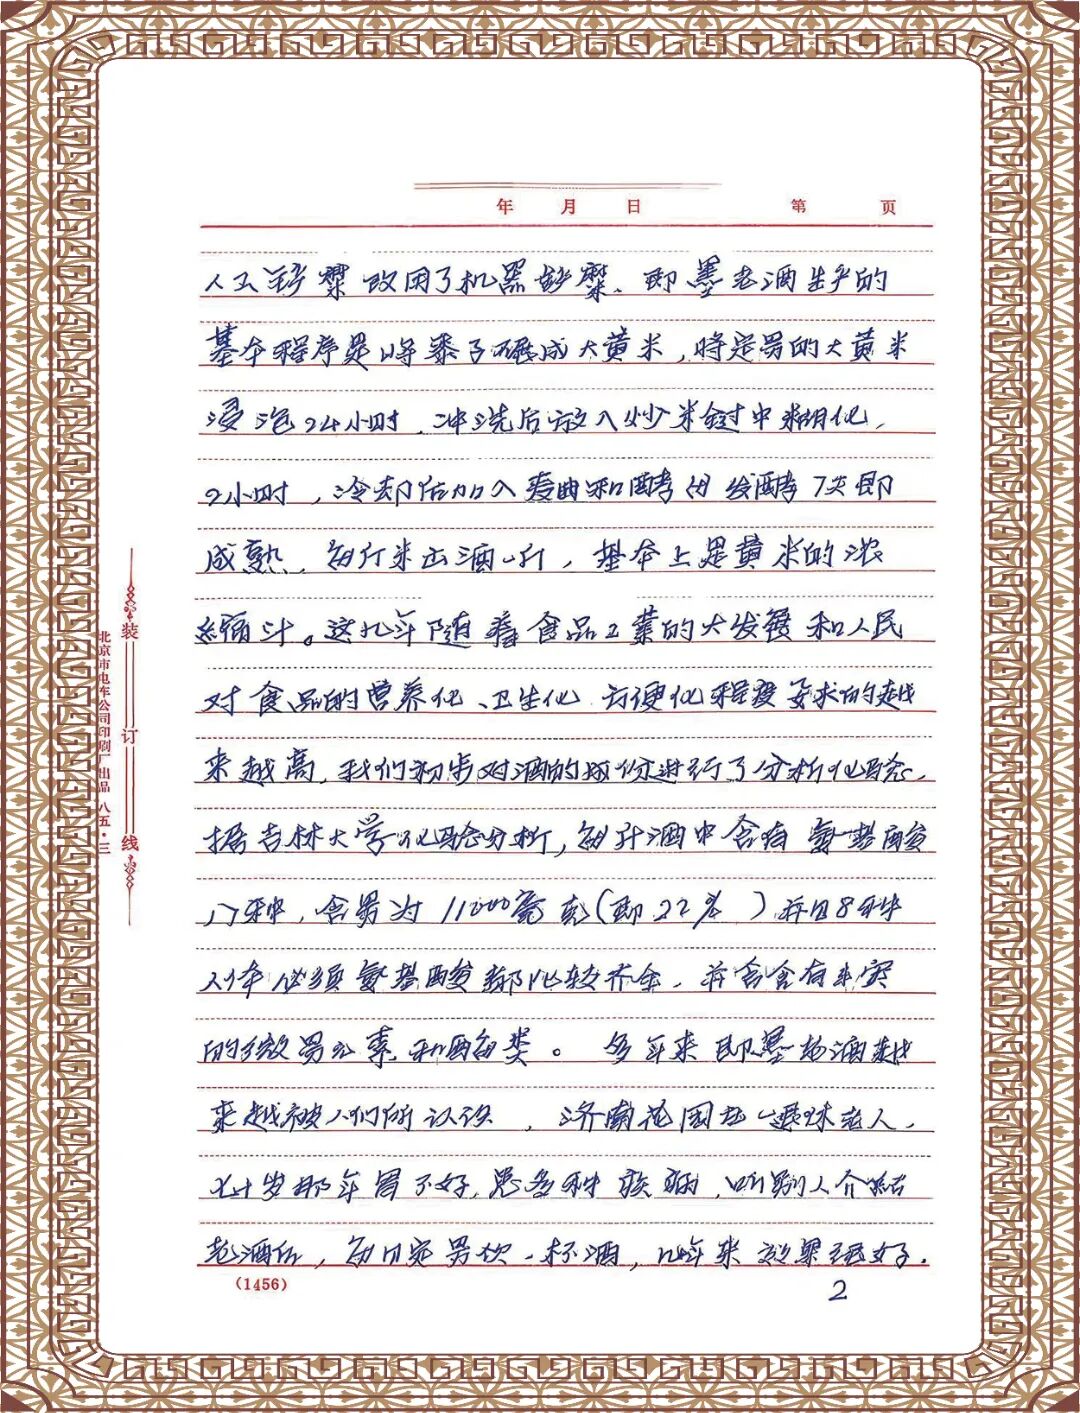 年 月 日 第 页
人工 糜改用了机器 糜、即墨老酒生产的
基本程序是将黍子碾成大黄米,将定量的大黄米
浸泡24小时,冲洗后放入炒米锅中糊化,
2小时,冷却后加入麦曲和酵母发酵7天即
成熟,每斤米出酒一斤,基本上是黄米的浓
缩汁。这几年随着食品工业的大发展和人民
对食品的营养化、卫生化、方便化程度要求的越
来越高,我们初步对酒的成份进行了分析化验,
据吉林大学化验分析,每升酒中含有氨基酸
八种,含量为11000毫克(即22%)并且8种
人体必须氨基酸都比较齐全,并含含有丰实
的微量元素和酶类。多年来即墨老酒越
来越被人们所认识,济南花园 老人,
七十岁那年胃不好,患多种疾病,听别人介绍
老酒后,每日定量饮一杯酒,几年来效果很好.
(1456)
2
装订线
北京市电车公司印刷厂出品 八五·三